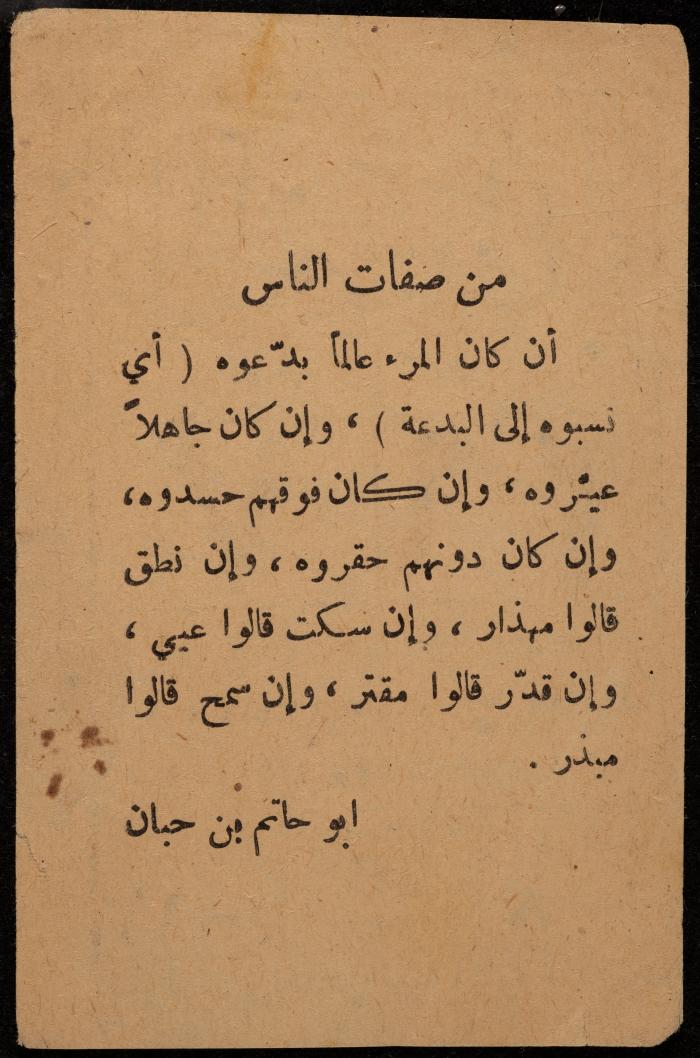 من صفات الناس
أن كان المرء عالماً بدّعوه ( أي
نسبوه إلى البدعة ) ، وإن كان جاهلاً
عيّروه ، وإن كان فوقهم حسدوه،
وإن كان دونهم حقروه ، وإن نطق
قالوا مهذار ، وإن سكت قالوا عيي ،
وإن قدّر قالوا مقتر ، وإن سمح قالوا
مبذر .
ابو حاتم بن حبان